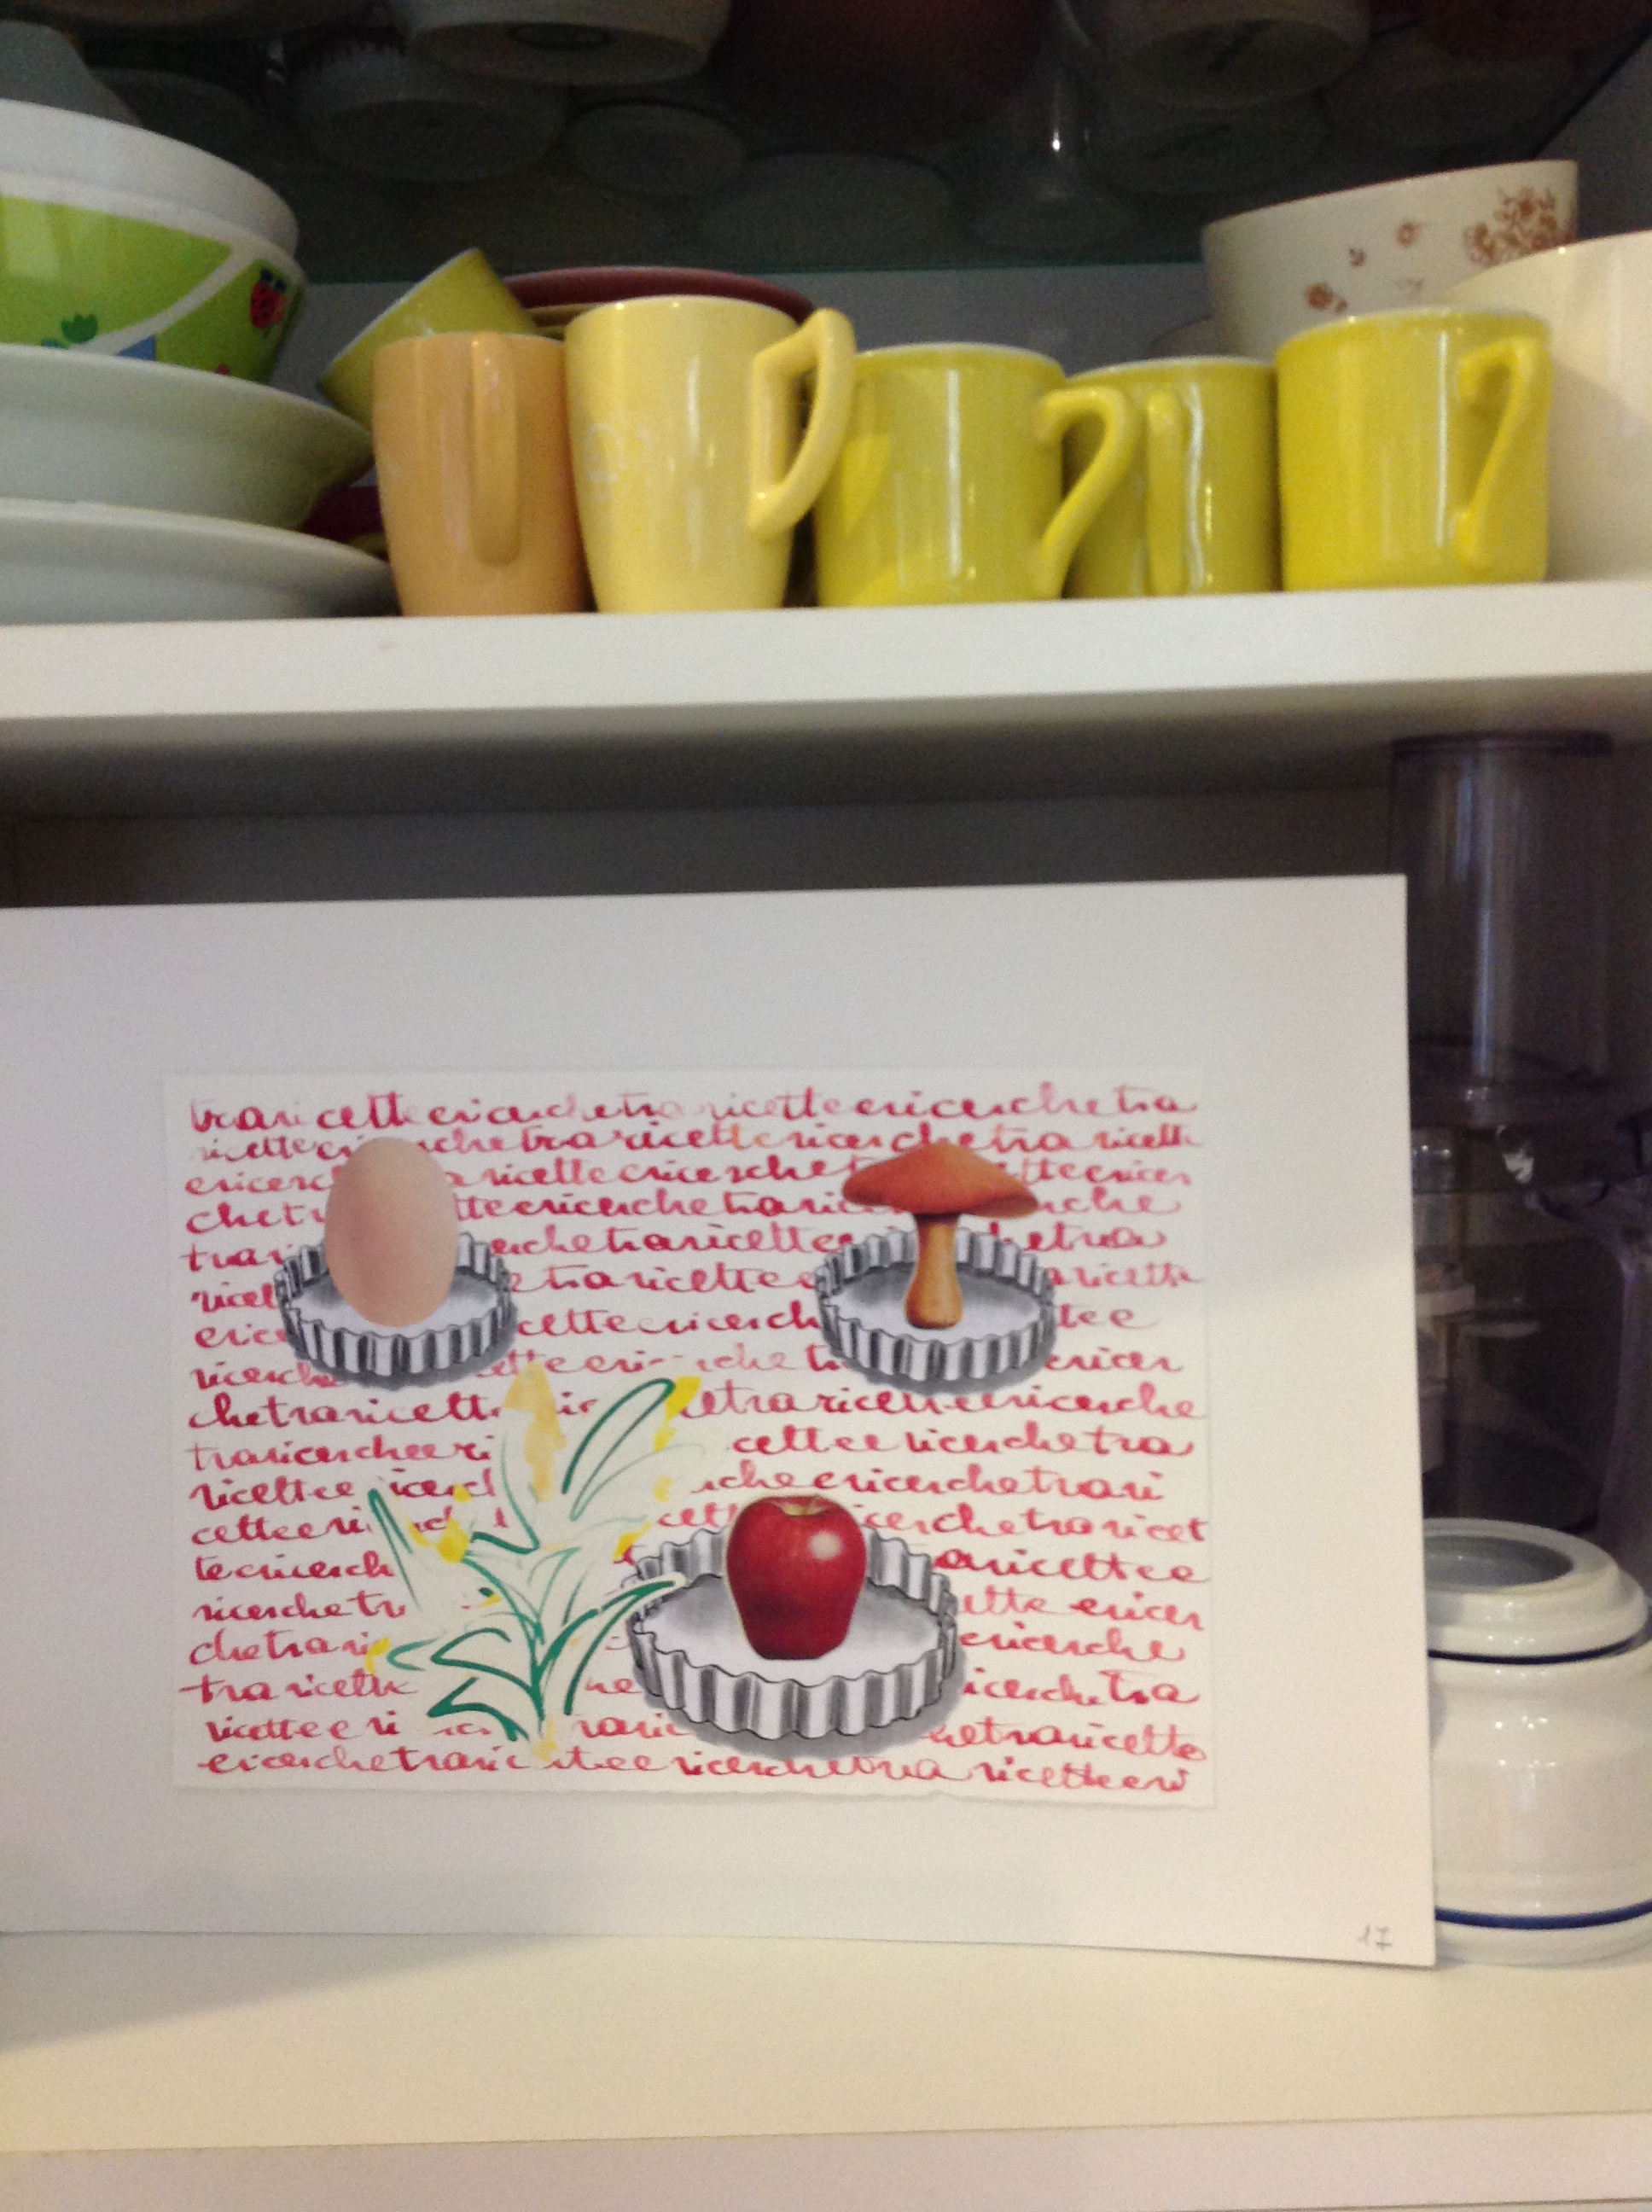 traricetteericerchetraricetteericerchetra
ricetteeri cherchetraricettericerchetra ricette
ericerc a ricetteericerche t tteericer
chetr tteericerchetraric rche
trar erchetraricettee chetra
ricet etraricettee aricette
erice cetteericerch tee
ricerche etteeri rche t ericer
chetraricette ric etraricetteericerche
traricercheeri cetteericerchetra
ricettee icerc rcheericerchetrari
cetteeri rc cett icerchetraricet
teericerch t aricettee
ricerchetr ette ericer
chetrari ericerche
traricette he icerchetra
ricetteeri rce traric hetraricette
ericerchetraric tteericerchetraricetteeri
17